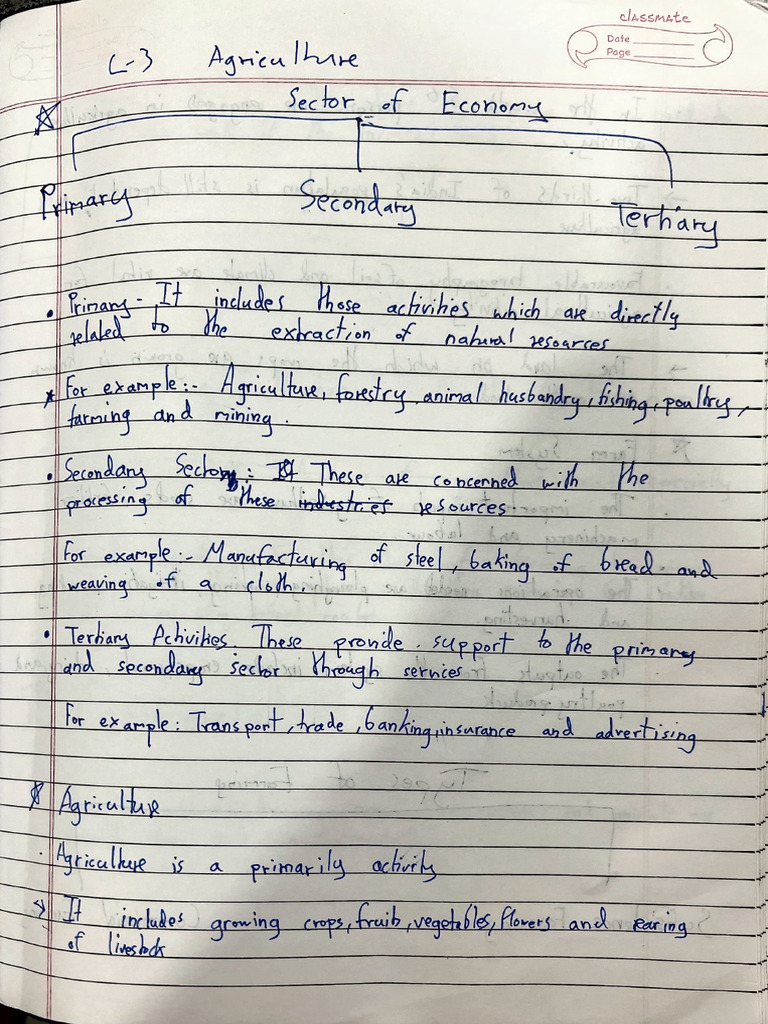 classmate
Date
Page
L-3 Agriculture
Sector of Economy
Primary Secondary Tertiary
• Primary - It includes those activities which are directly
related to the extraction of natural resources
* For example:- Agriculture, forestry, animal husbandry, fishing, poultry,
farming and mining.
• Secondary Sector: These are concerned with the
processing of these industries resources.
For example:- Manufacturing of steel, baking of bread and
weaving of a cloth.
• Tertiary Activities. These provide support to the primary
and secondary sector through services
For example: Transport, trade, banking, insurance and advertising
Agriculture
. Agriculture is a primarily activity
→ It includes growing crops, fruib, vegetables, flowers and rearing
of livestock